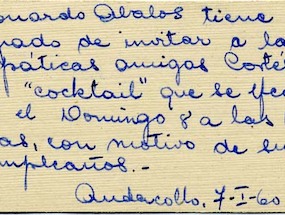 onardo Abalos tiene
pado de invitar a la
páticas amigas Corté
"cocktail" que se efec
el Domingo 8 a las
as, con motivo de su
mpleaños.-
Andacollo, 7-I-60